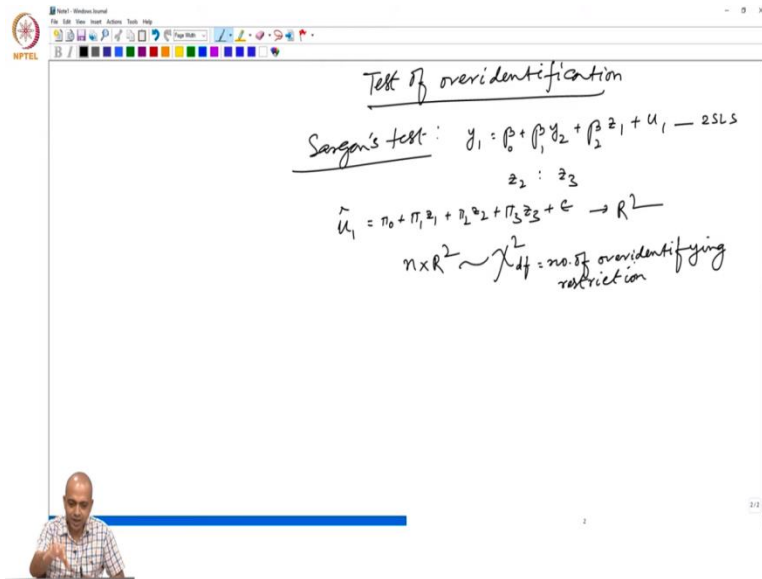 Note1 - Windows Journal
File Edit View Insert Actions Tools Help
Page Width
B I
NPTEL
Test of overidentification
Sargan's test : y₁ = β₀ + β₁y₂ + β₂z₁ + u₁ — 2SLS
z₂ : z₃
û₁ = π₀ + π₁z₁ + π₂z₂ + π₃z₃ + ε → R²
n×R² ~ χ²df = no. of overidentifying
restriction
2
2/2